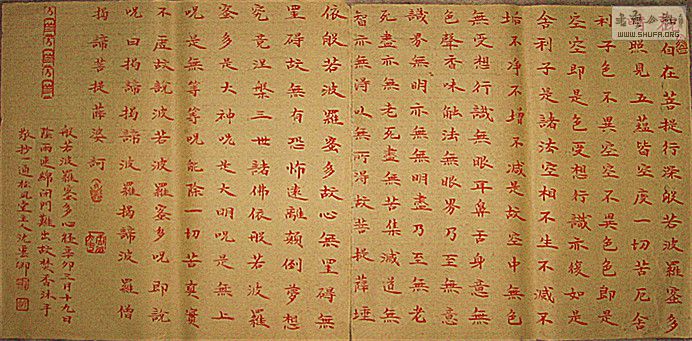 自在菩提行深般若波羅蜜多
照見五蘊皆空度一切苦厄舍
利子色不異空空不異色色即是
空空即是色受想行識亦復如是
舍利子是諸法空相不生不滅不
垢不净不增不減是故空中無色
無受想行識無眼耳鼻舌身意無
色聲香味觸法無眼界乃至無意
識界無明亦無無明盡乃至無老
死盡亦無老死盡無苦集滅道無
智亦無得以無所得故菩提薩埵
依般若波羅蜜多故心無罣礙無
罣礙故無有恐怖遠離顛倒夢想
究竟涅槃三世諸佛依般若波羅
蜜多是大神咒是大明咒是無上
咒是無等等咒能除一切苦真實
不虛故說波若波羅蜜多咒即說
咒曰揭諦揭諦波羅揭諦波羅僧
揭諦菩提薩婆訶
般若波羅蜜多心經辛卯月十九日
陰雨連綿閉門難出故焚香沐手
敬抄一通堂主人沈墨卿
WWW.SHUFA.ORG